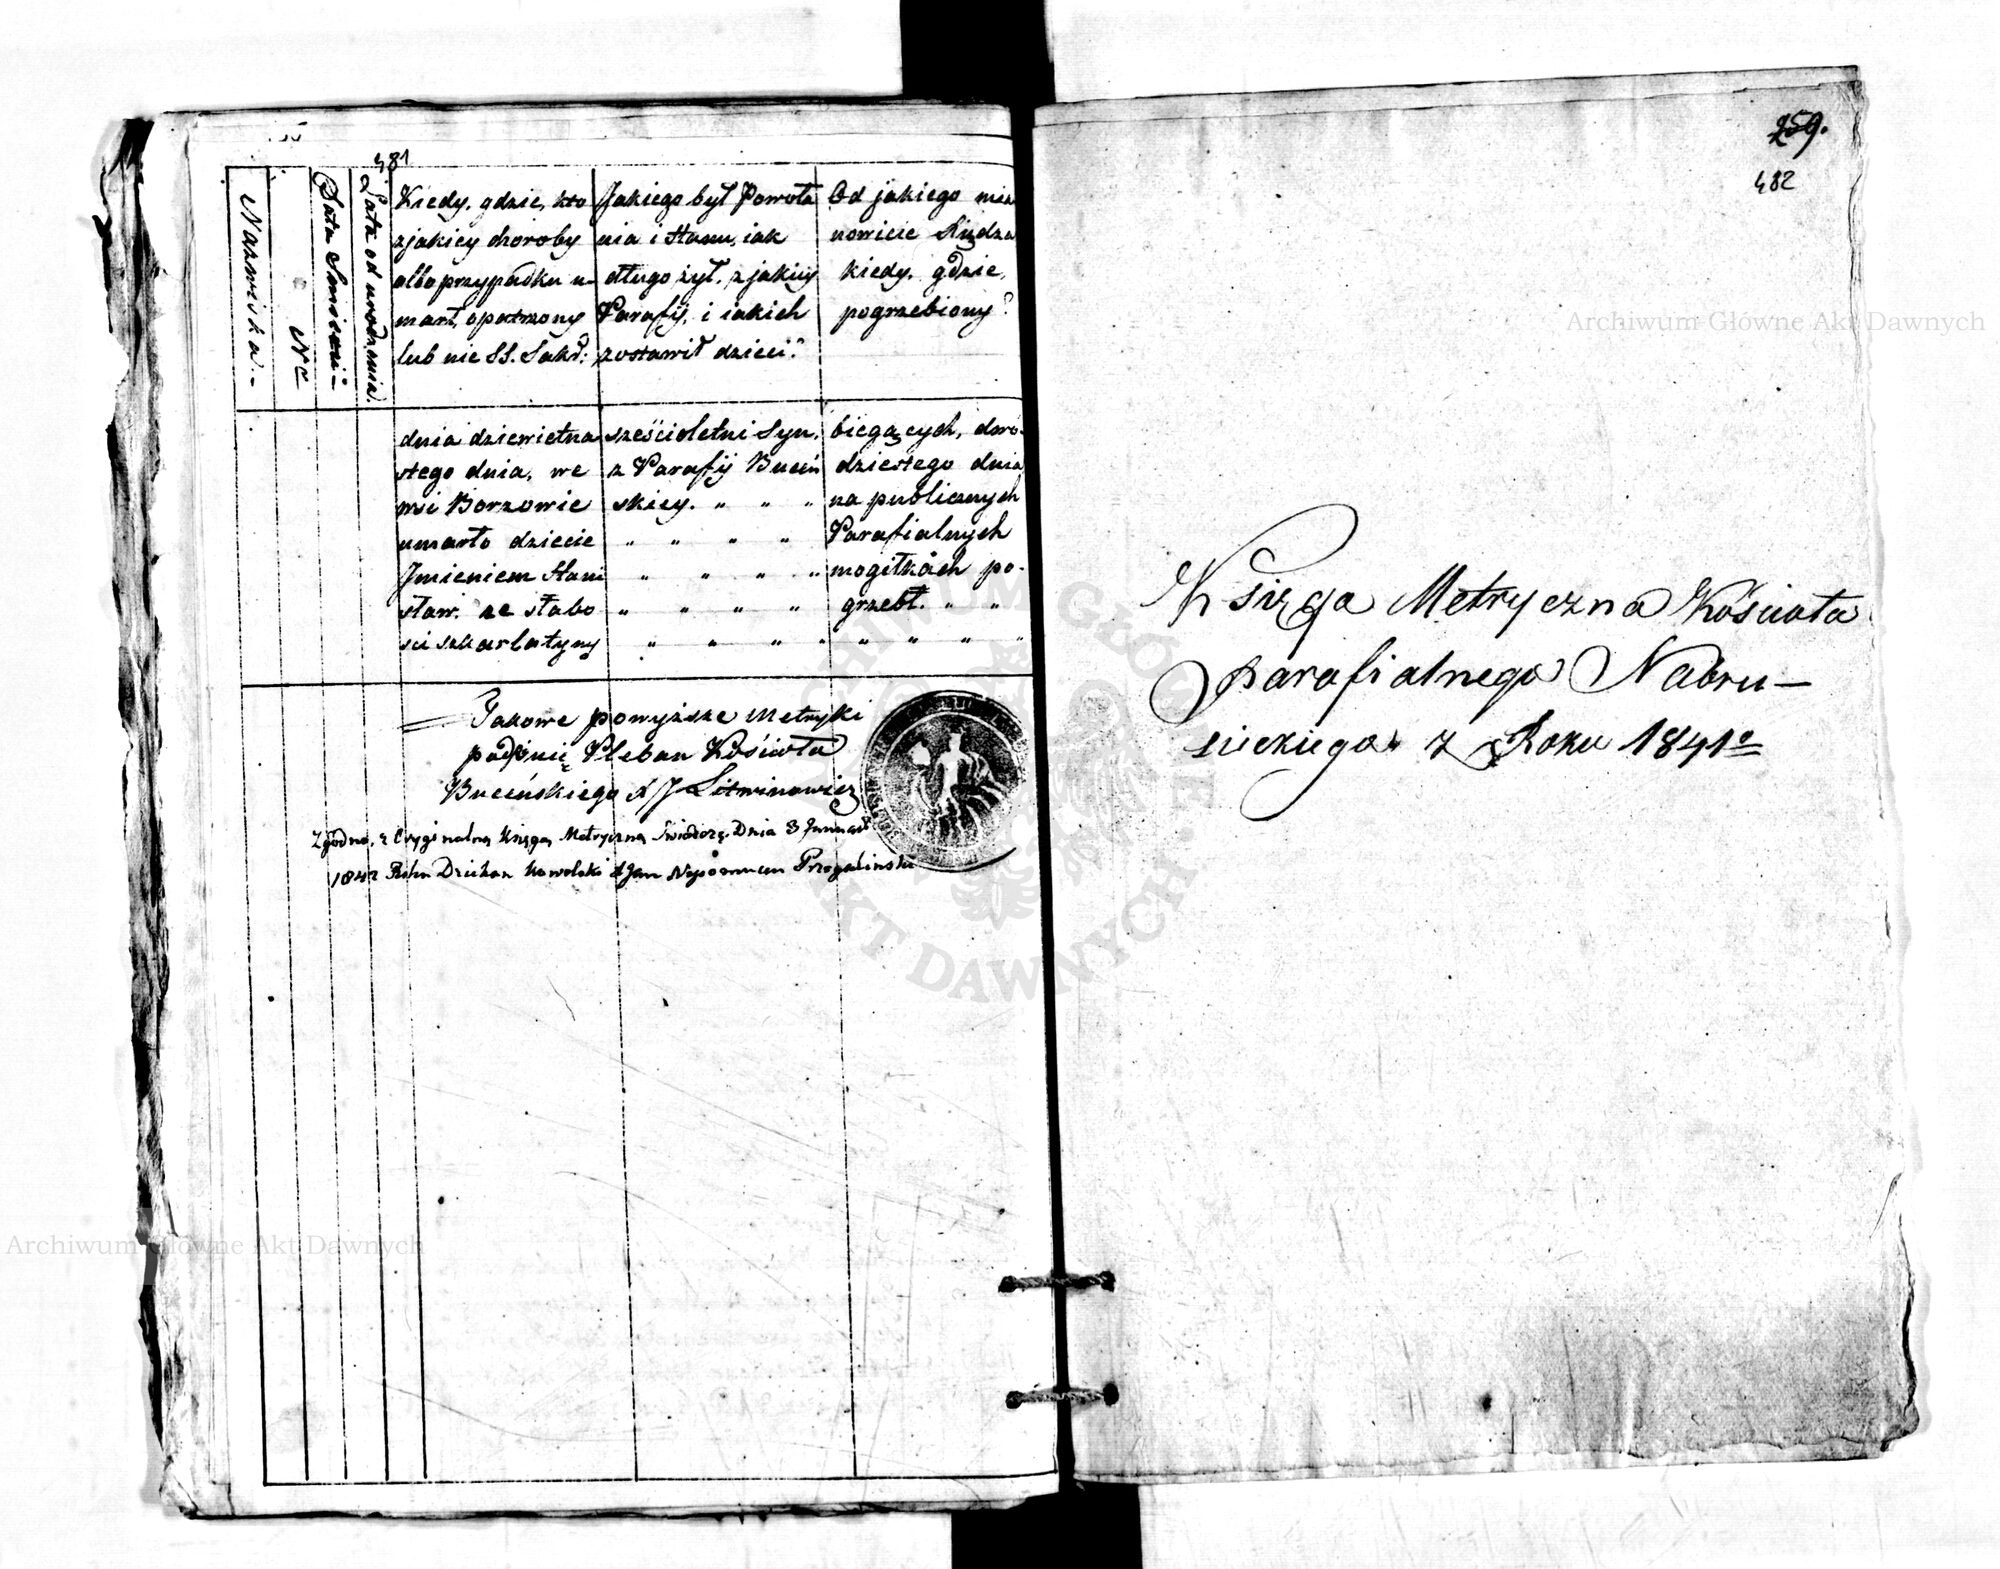 481
Nazwiska.
Nr
Data Smierci
Lata od urodzenia.
Kiedy, gdzie, kto
z jakiey choroby
albo przypadku u-
marł, opatrzony
lub nie SS. Sakr:
Jakiego był Powoła
nia i stanu, iak
długo żył, z jakiey
Parafij, i iakich
zostawił dzieci?
Od jakiego mia
nowicie Xiędza
kiedy, gdzie,
pogrzebiony?
dnia dziewietna
stego dnia, we
wsi Borzowie
umarło dziecie
Jmieniem Stani
sław. ze słabo
sci szkarlatyny
sześcioletni Syn,
z Parafij Buceń
skiey. " " "
" " " "
" " " "
" " " "
" " " "
biegących, dwu-
dziestego dnia
na publicznych
Parafialnych
mogiłkach po-
grzebł. " "
" " " "
Jakowe powyższe Metryki
podpisuię Pleban Kościoła
Buceńskiego X J Litwinowicz
Zgodno, z Oryginalną Księgą Metryczną Świadczę. Dnia 3 Januar
1842 Roku Dziekan Kowelski X Jan Nepomucen Przegaliński
259.
482
Księga Metryczna Kościoła
Parafialnego Nabru-
sieckiego z Roku 1841o
Archiwum Główne Akt Dawnych
Archiwum Główne Akt Dawnych
ARCHIWUM GŁÓWNE AKT DAWNYCH